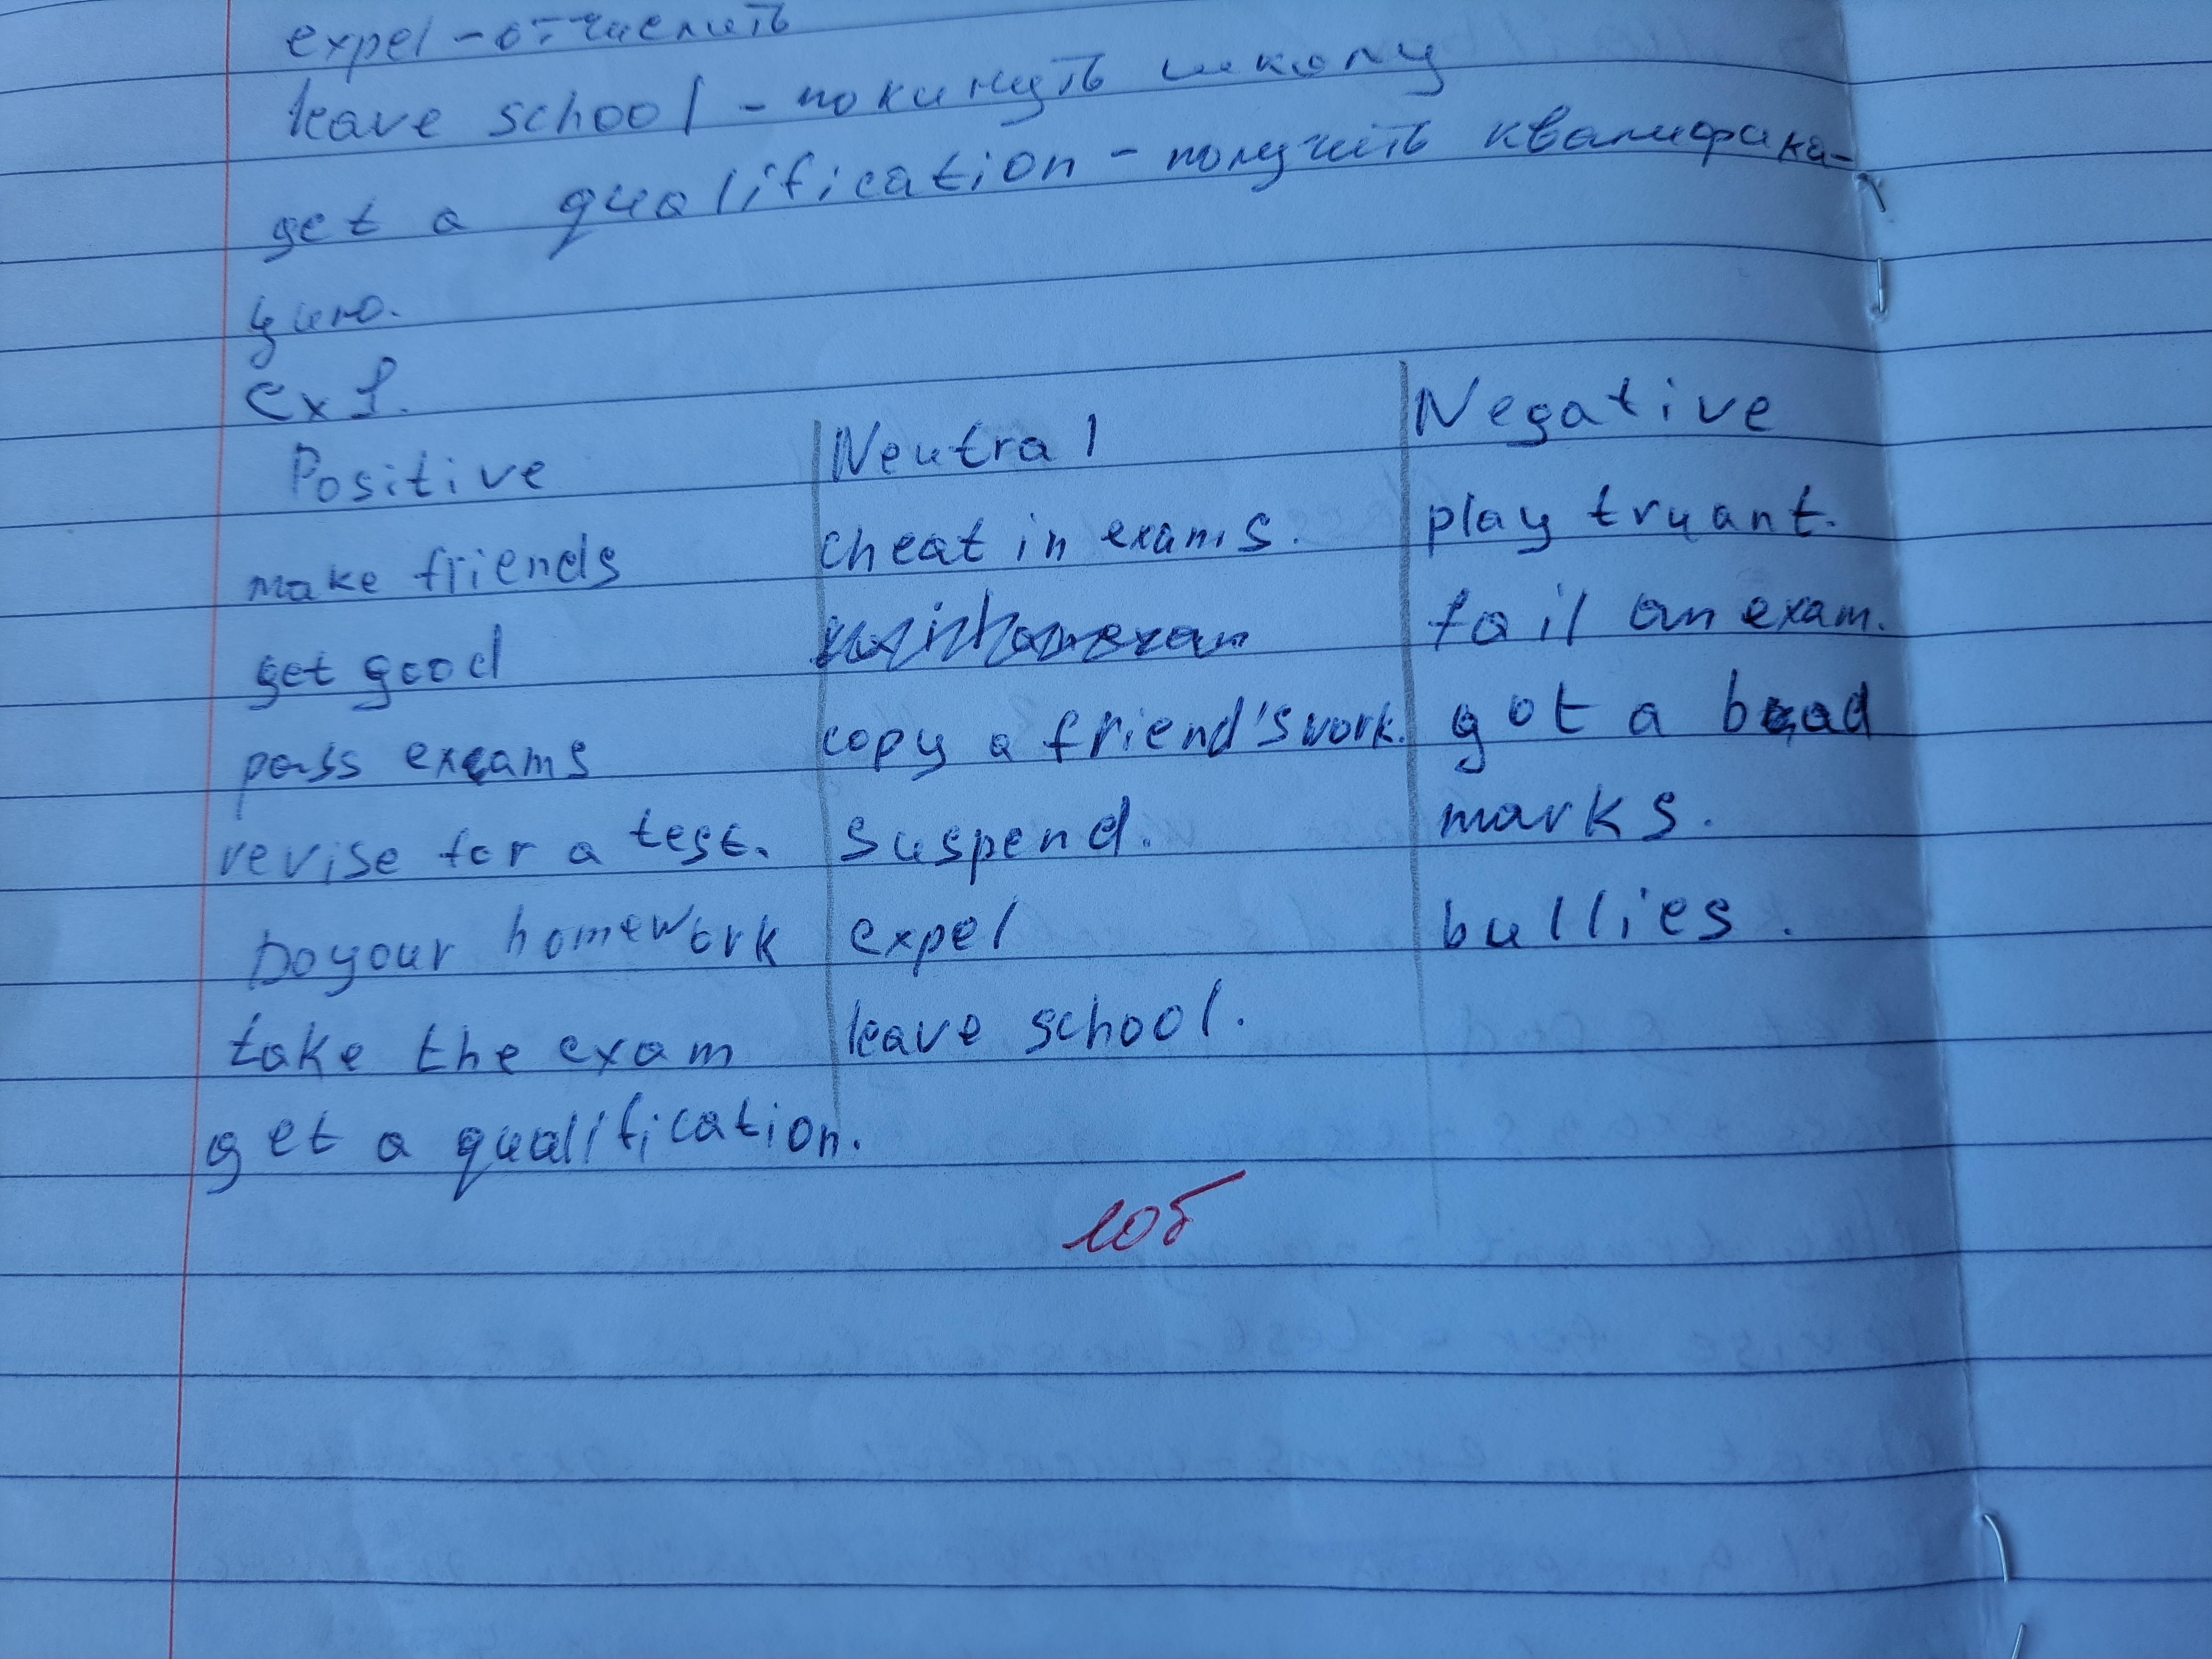 expel - отчислить
leave school - покинуть школу
get a qualification - получить квалифика-
цию.
ex 1.
Positive Neutral Negative
make friends cheat in exams. play truant.
get good fail an exam.
pass exams copy a friend's work. got a bad
revise for a test. suspend. marks.
Do your homework expel bullies.
take the exam leave school.
get a qualification.
10б